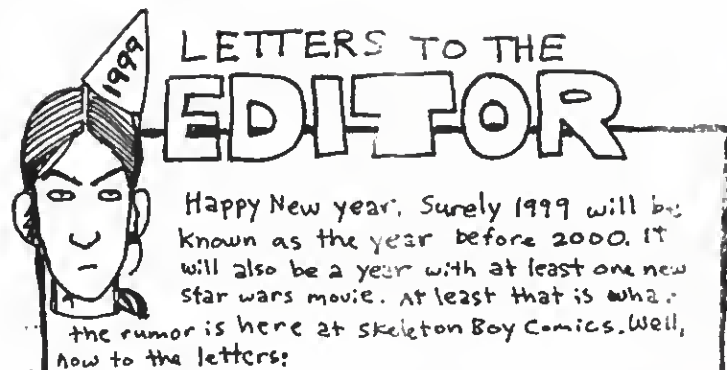 1999
LETTERS TO THE
EDITOR
Happy New year. Surely 1999 will be
known as the year before 2000. It
will also be a year with at least one new
star wars movie. At least that is wha
the rumor is here at Skeleton Boy Comics. Well,
now to the letters: